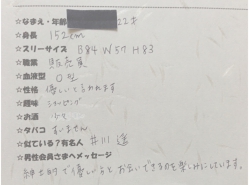 ☆なまえ・年齢 22才
☆身長 152cm
☆スリーサイズ B84 W57 H83
☆職業 販売業
☆血液型 O型
☆性格 優しいと言われます
☆趣味 ショッピング
☆お酒 少々
☆タバコ すいません
☆似ている?有名人 井川遥
☆男性会員さまへメッセージ
紳士的で優しい方とお会いできるのを楽しみにしています。